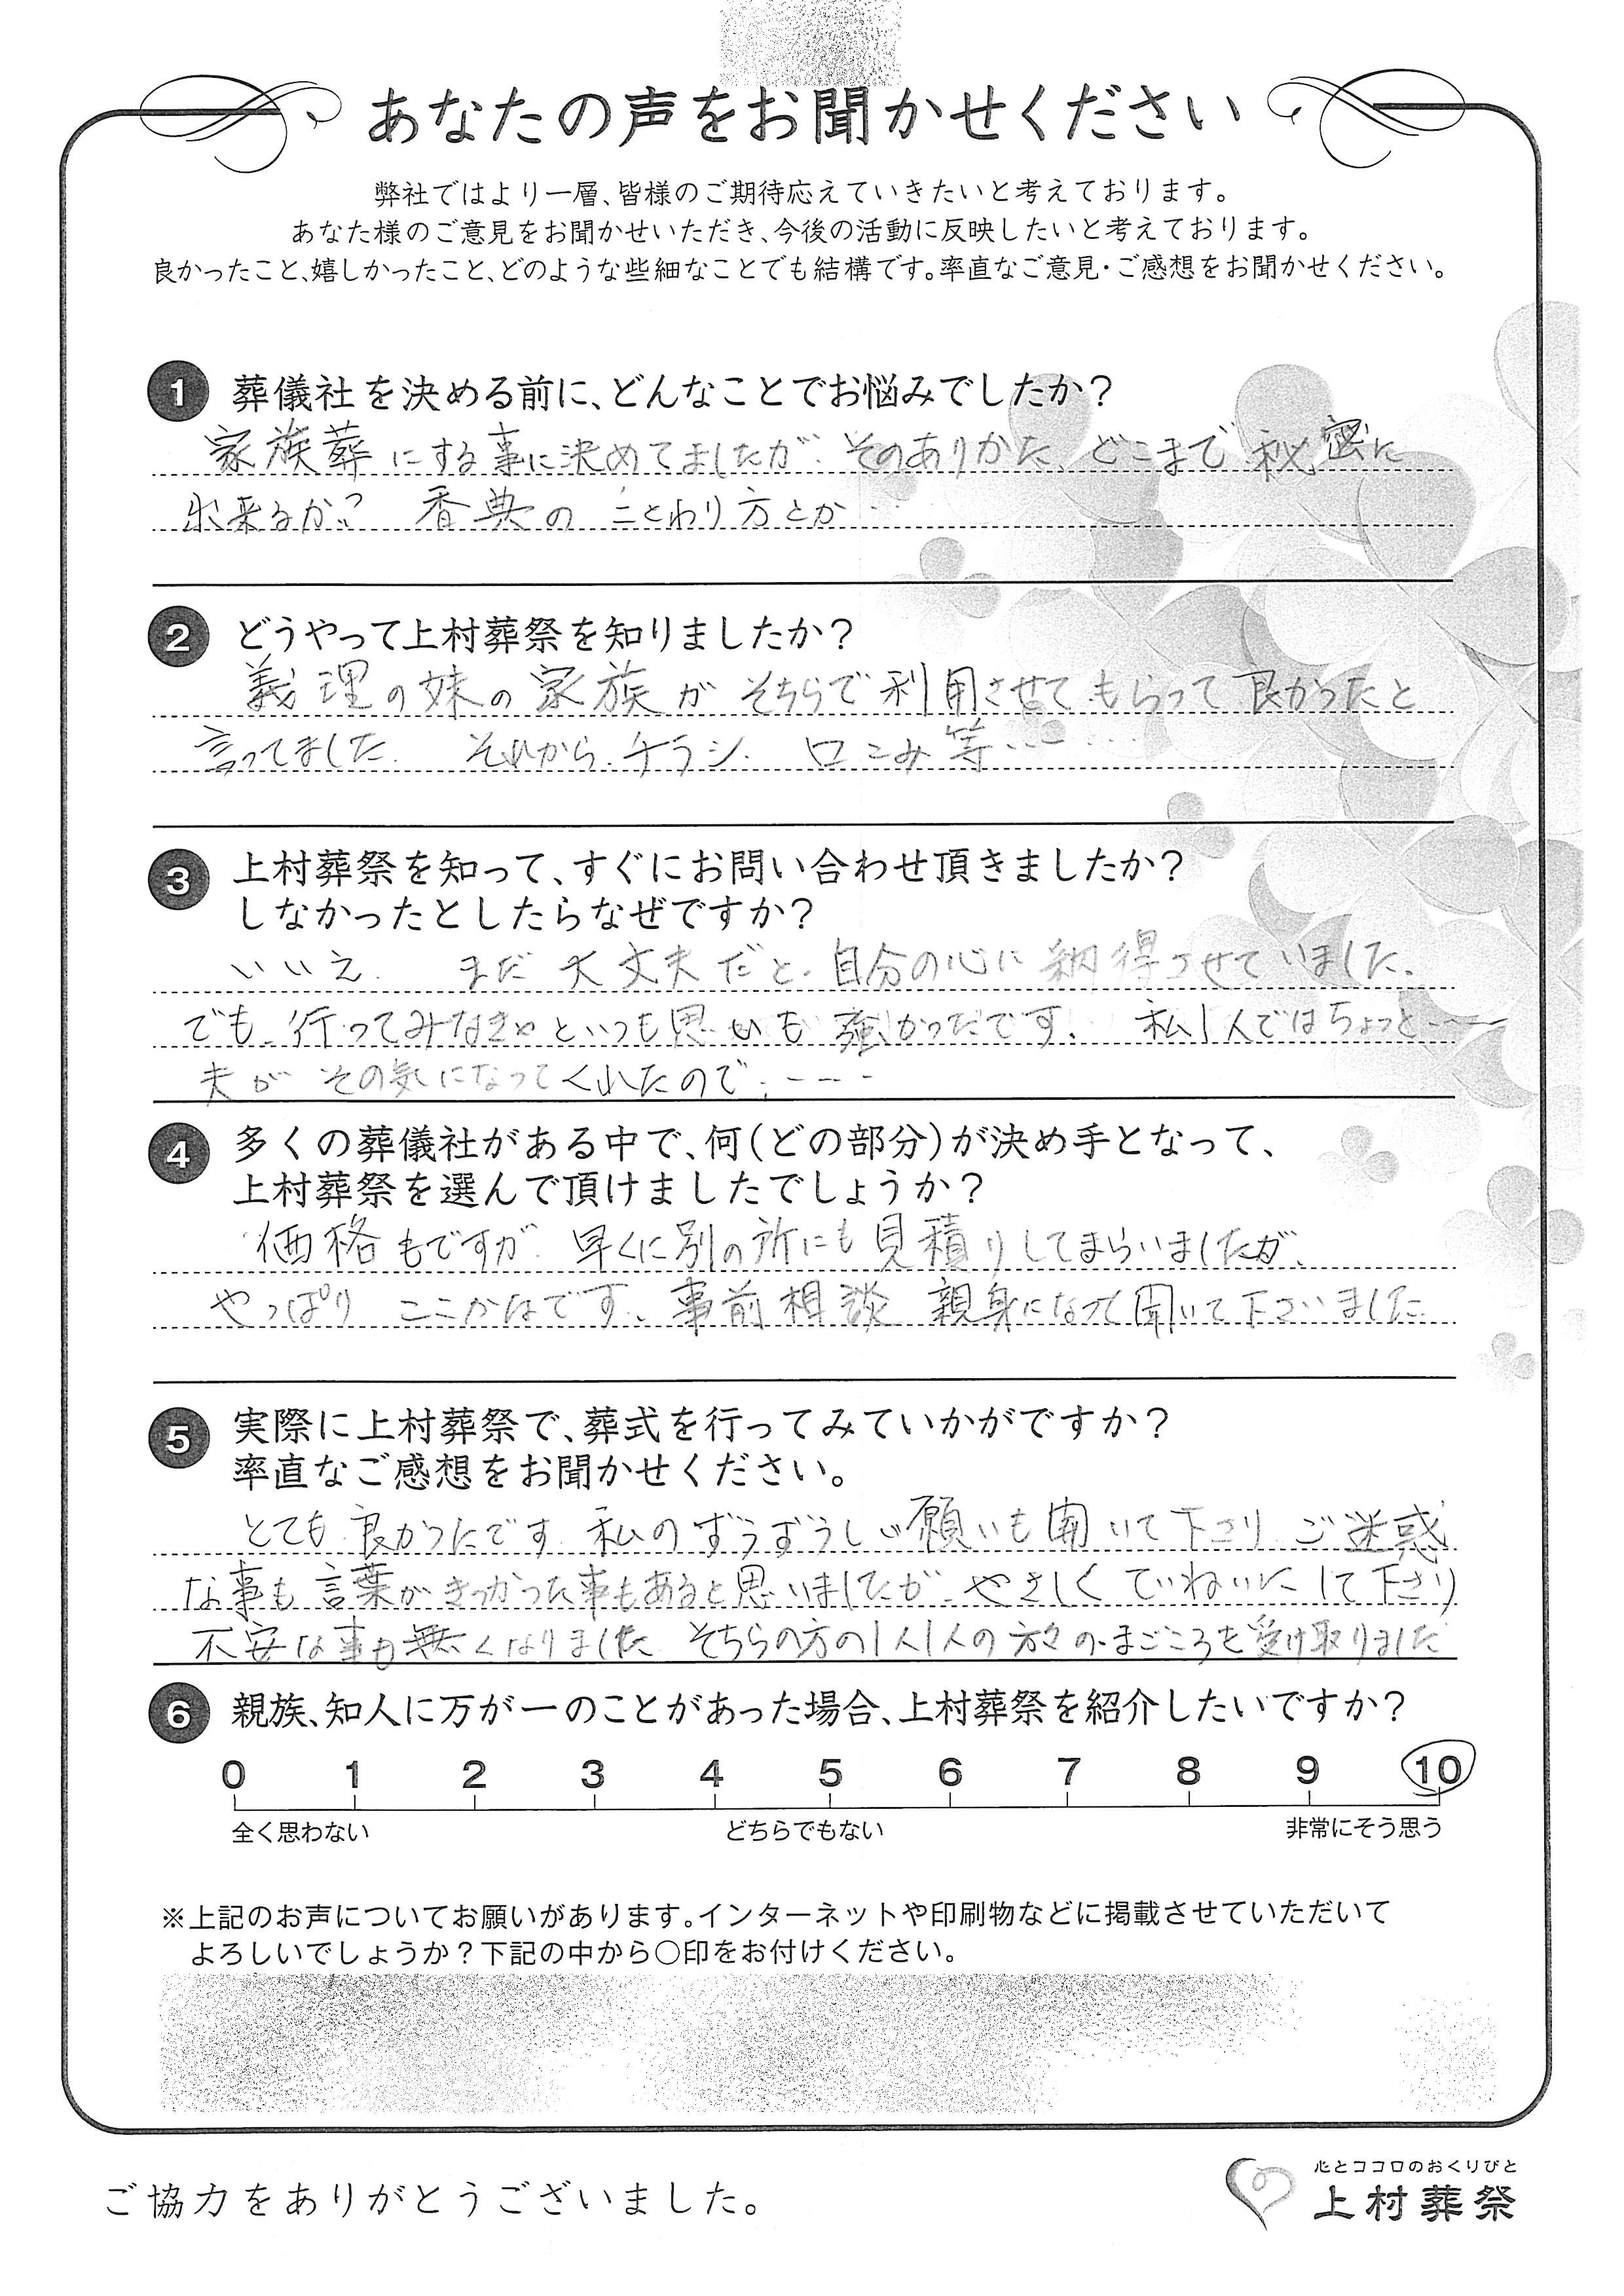 あなたの声をお聞かせください
弊社ではより一層、皆様のご期待応えていきたいと考えております。
あなた様のご意見をお聞かせいただき、今後の活動に反映したいと考えております。
良かったこと、嬉しかったこと、どのような些細なことでも結構です。率直なご意見・ご感想をお聞かせください。
1 葬儀社を決める前に、どんなことでお悩みでしたか？
家族葬にする事に決めてましたが、そのありかた、どこまで秘密に
出来るか？ 香典のことわり方とか…
2 どうやって上村葬祭を知りましたか？
義理の妹の家族がそちらで利用させてもらって良かったと
言ってました。 それから、チラシ、口こみ等……
3 上村葬祭を知って、すぐにお問い合わせ頂きましたか？
しなかったとしたらなぜですか？
いいえ、 まだ大丈夫だと、自分の心に納得させていました。
でも、行ってみなきゃといつも思いも強かったです。 私1人ではちょっと----
夫がその気になってくれたので、----
4 多くの葬儀社がある中で、何（どの部分）が決め手となって、
上村葬祭を選んで頂けましたでしょうか？
価格もですが、早くに別の所にも見積りしてもらいましたが、
やっぱり ここかなです。事前相談 親身になって聞いて下さいました
5 実際に上村葬祭で、葬式を行ってみていかがですか？
率直なご感想をお聞かせください。
とても良かったです。私のずうずうしい願いも聞いて下さり、ご迷惑
な事も言葉がきつかった事もあると思いましたが、やさしくていねいにして下さり
不安な事も無くなりました そちらの方の1人1人の方々のまごころを受け取りました
6 親族、知人に万が一のことがあった場合、上村葬祭を紹介したいですか？
0 1 2 3 4 5 6 7 8 9 10
全く思わない どちらでもない 非常にそう思う
※上記のお声についてお願いがあります。インターネットや印刷物などに掲載させていただいて
よろしいでしょうか？下記の中から〇印をお付けください。
ご協力をありがとうございました。
心とココロのおくりびと
上村葬祭